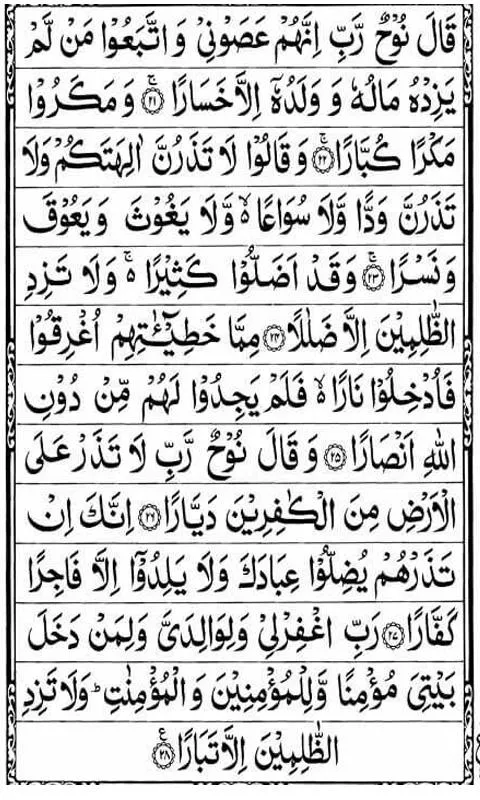 قَالَ نُوْحٌ رَّبِّ اِنَّهُمْ عَصَوْنِیْ وَ اتَّبَعُوْا مَنْ لَّمْ
یَزِدْهُ مَالُهٗ وَ وَلَدُهٗۤ اِلَّا خَسَارًا ۚ﴿۲۱﴾ وَ مَكَرُوْا
مَكْرًا كُبَّارًا ۚ﴿۲۲﴾ وَ قَالُوْا لَا تَذَرُنَّ اٰلِهَتَكُمْ وَلَا
تَذَرُنَّ وَدًّا وَّلَا سُوَاعًا ۙ۬ وَّلَا یَغُوْثَ وَ یَعُوْقَ
وَ نَسْرًا ۚ﴿۲۳﴾ وَ قَدْ اَضَلُّوْا كَثِیْرًا ۚ۬ وَ لَا تَزِدِ
الظّٰلِمِیْنَ اِلَّا ضَلٰلًا ﴿۲۴﴾ مِمَّا خَطِیْٓـٰٔتِهِمْ اُغْرِقُوْا
فَاُدْخِلُوْا نَارًا ۙ۬ فَلَمْ یَجِدُوْا لَهُمْ مِّنْ دُوْنِ
اللّٰهِ اَنْصَارًا ﴿۲۵﴾ وَ قَالَ نُوْحٌ رَّبِّ لَا تَذَرْ عَلَی
الْاَرْضِ مِنَ الْكٰفِرِیْنَ دَیَّارًا ﴿۲۶﴾ اِنَّكَ اِنْ
تَذَرْهُمْ یُضِلُّوْا عِبَادَكَ وَ لَا یَلِدُوْۤا اِلَّا فَاجِرًا
كَفَّارًا ﴿۲۷﴾ رَبِّ اغْفِرْلِیْ وَ لِوَالِدَیَّ وَ لِمَنْ دَخَلَ
بَیْتِیَ مُؤْمِنًا وَّ لِلْمُؤْمِنِیْنَ وَ الْمُؤْمِنٰتِ ؕ وَ لَا تَزِدِ
الظّٰلِمِیْنَ اِلَّا تَبَارًا ﴿۲۸﴾ع